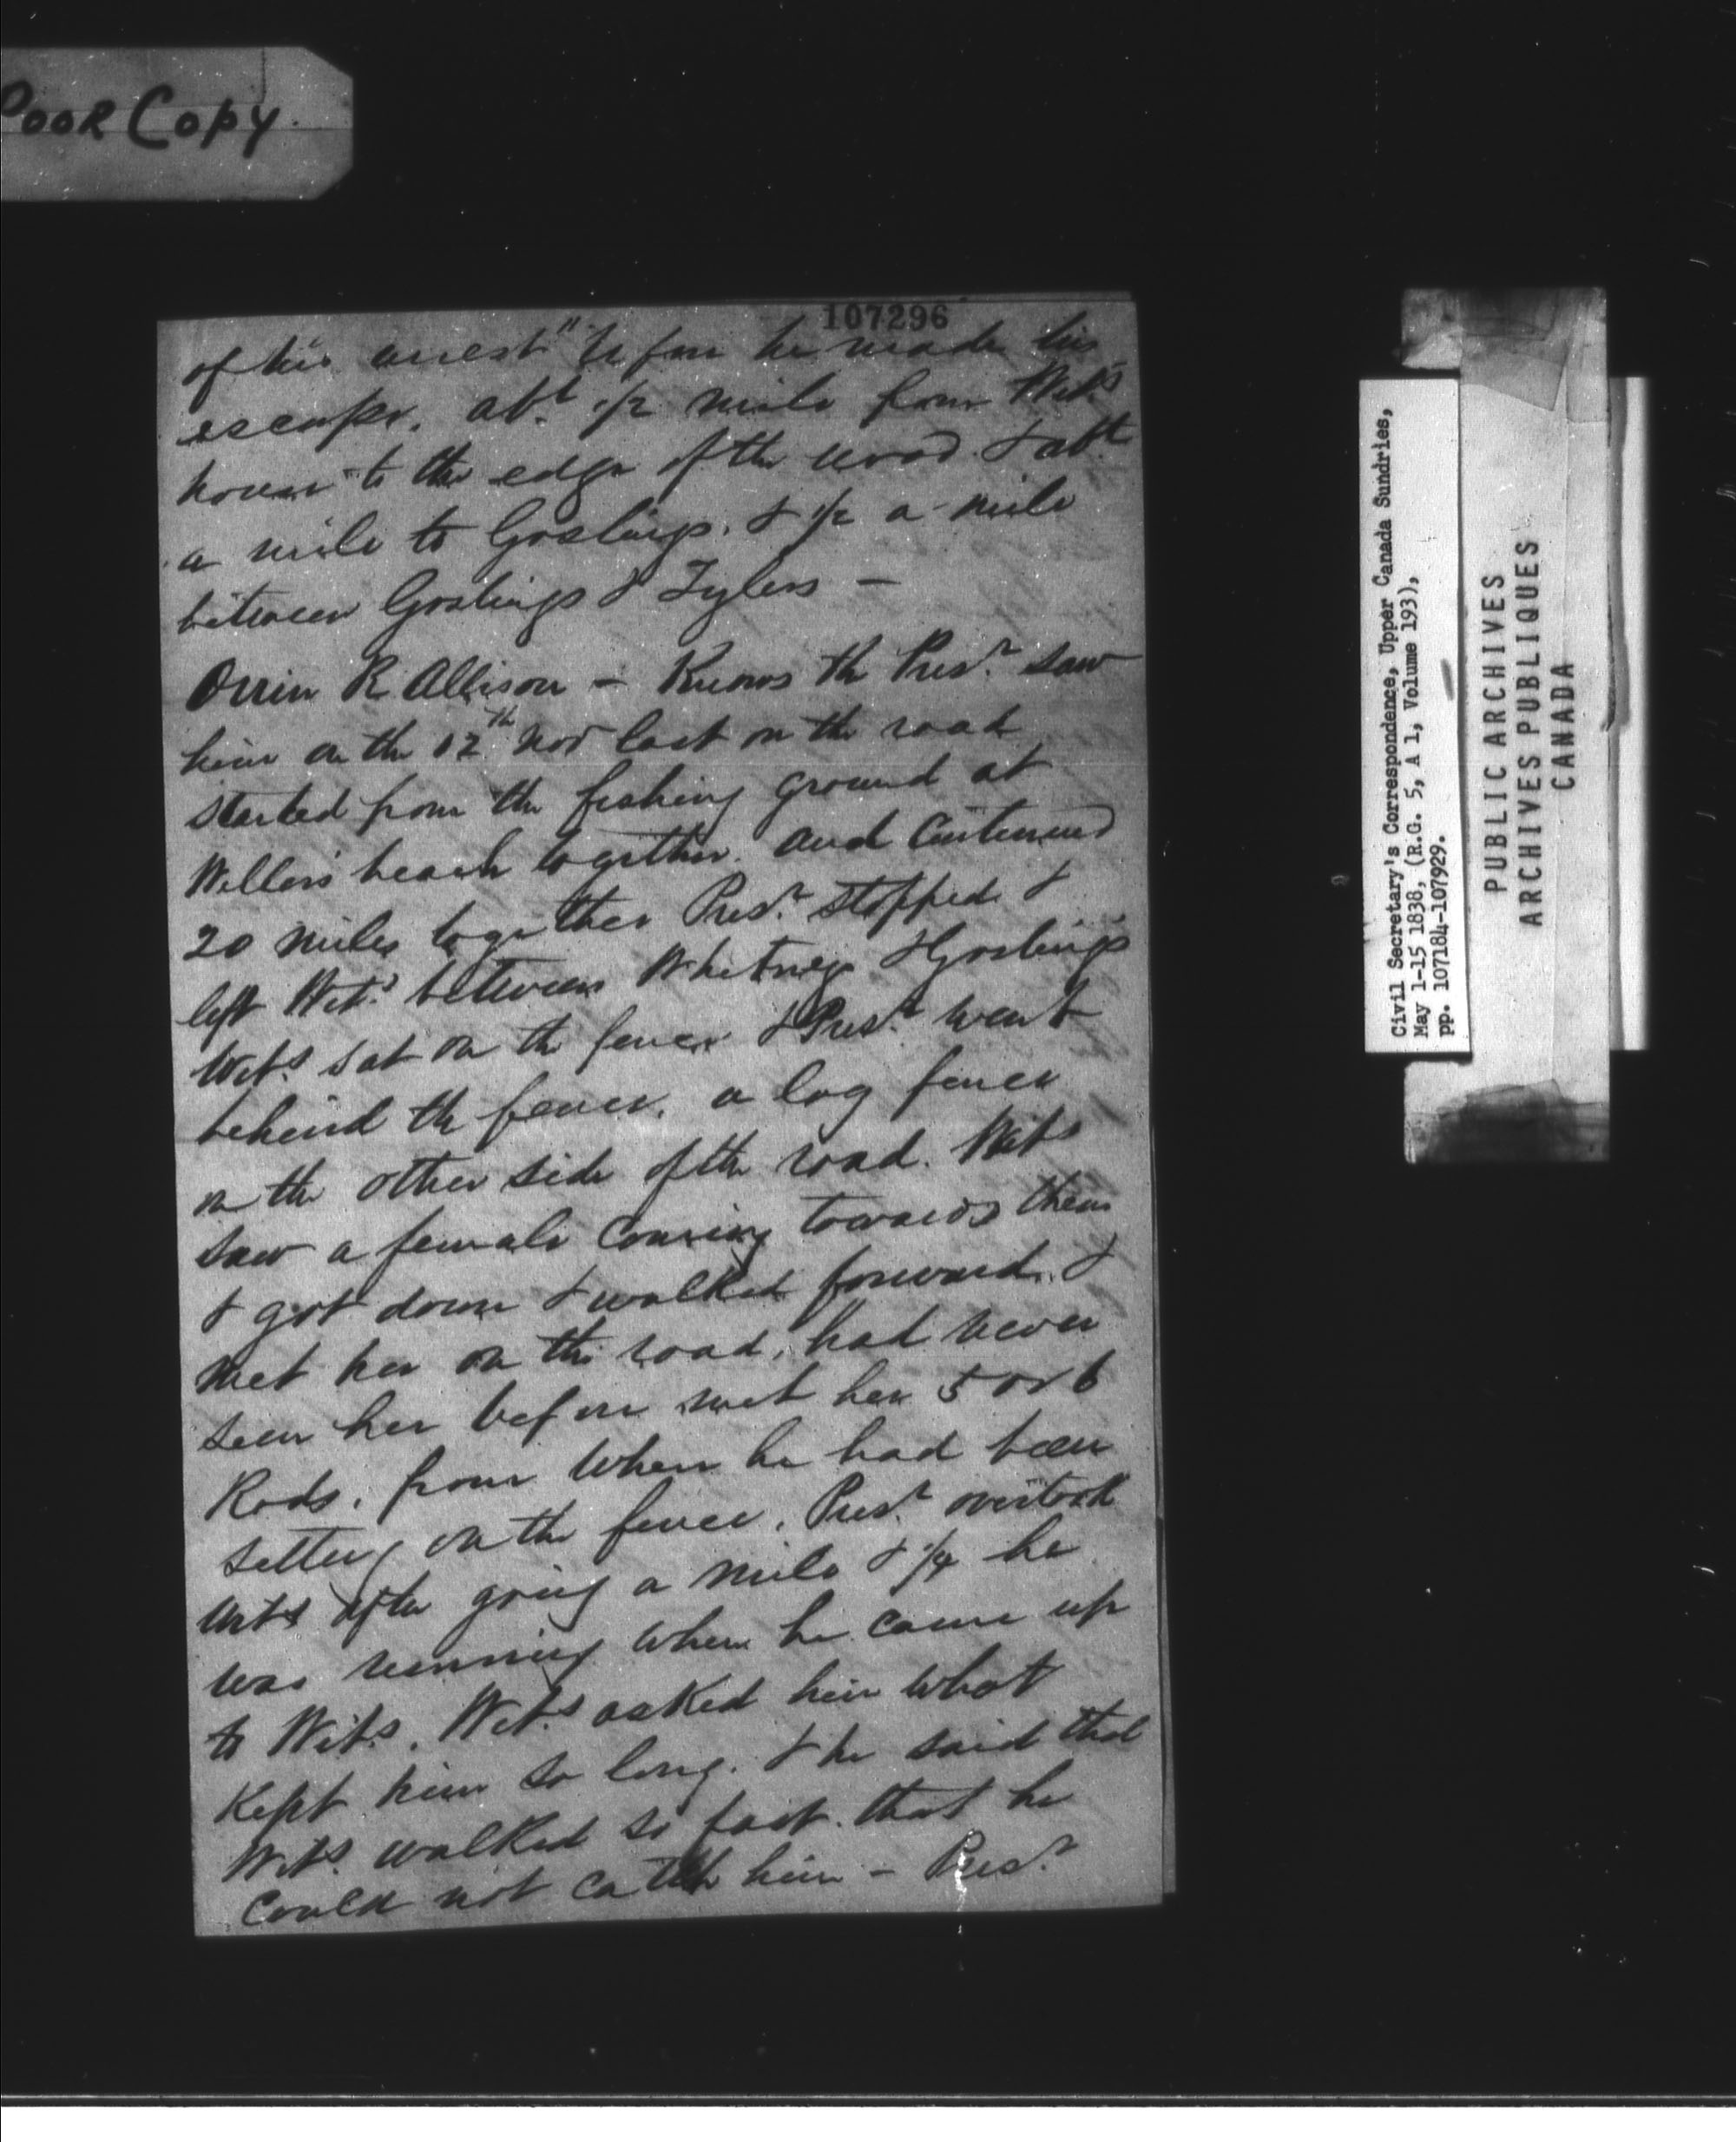 Poor Copy.
107296
of his arrest" before he made his
escape. abt. 1/2 mile from Wit.s
house to the edge of the wood & abt
a mile to Goslings. & 1/2 a mile
between Goslings & Tylers —
Orrin R Allison — Knows the Prisr. saw
him on the 12th Nov last on the road
started from the fishing ground at
Wellers beach together. and Continued
20 miles together Prisr. stopped &
left Wits. between Whitneys & Goslings
Wits. sat on the fence & Prisr. went
behind the fence. a log fence
on the other side of the road. Wits
saw a female Coming towards them
& got down & walked forward. &
met her on the road, had never
seen her before met her 5 or 6
Rods. from where he had been
setting on the fence. Prisr. overtook
Wits after going a mile & 1/4 he
was running when he came up
to Wits. Wits. asked him what
Kept him so long. & he said that
Wits. walked so fast. that he
Could not catch him — Prisr.
Civil Secretary's Correspondence, Upper Canada Sundries,
May 1-15 1838, (R.G. 5, A 1, Volume 193),
pp. 107184-107929.
PUBLIC ARCHIVES
ARCHIVES PUBLIQUES
CANADA